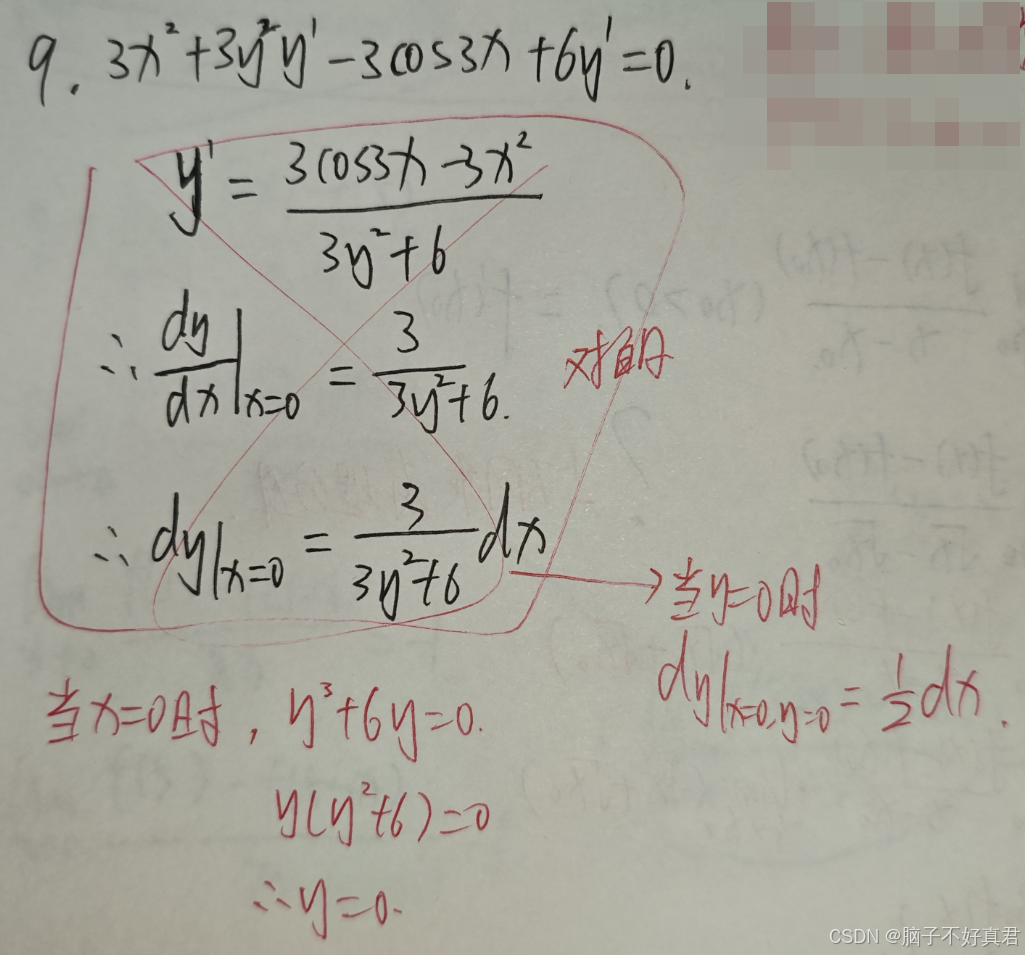 9. 3x²+3y²y'-3cos3x+6y'=0.
y' = (3cos3x-3x²)/(3y²+6)
∴ dy/dx|x=0 = 3/(3y²+6).
对的
∴ dy|x=0 = 3/(3y²+6) dx
→当y=0时
dy|x=0,y=0 = 1/2 dx.
当x=0时, y³+6y=0.
y(y²+6)=0
∴y=0.
CSDN @脑子不好真君